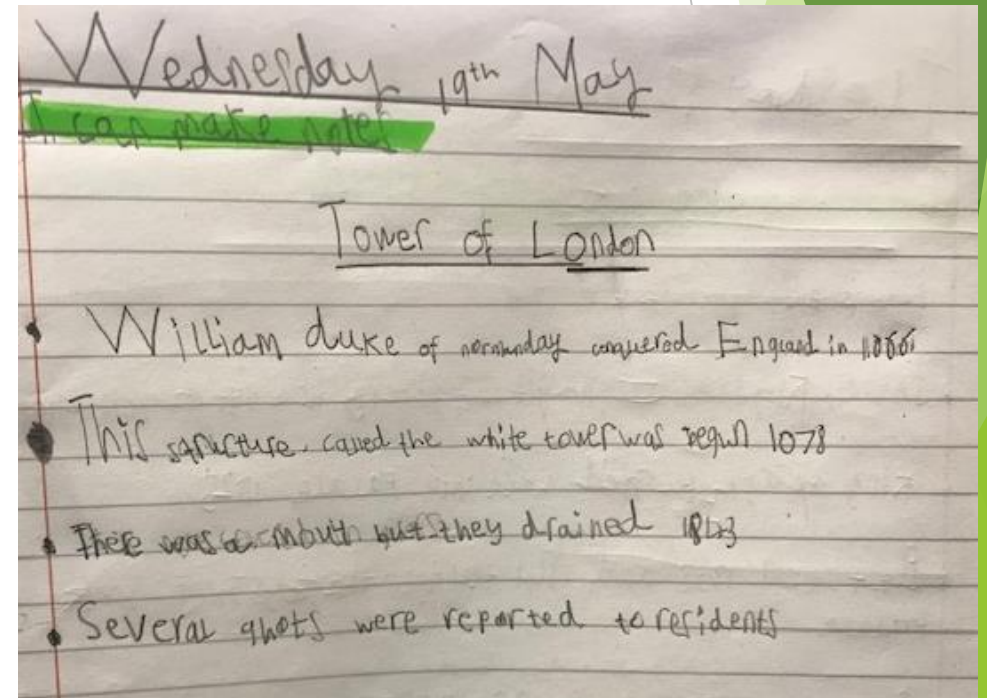 Wednesday 19th May
I can make notes
Tower of London
William duke of normunday conquered England in 1066
This structure called the white tower was begun 1078
There was a mouth but they drained 1843
Several ghots were reported to residents